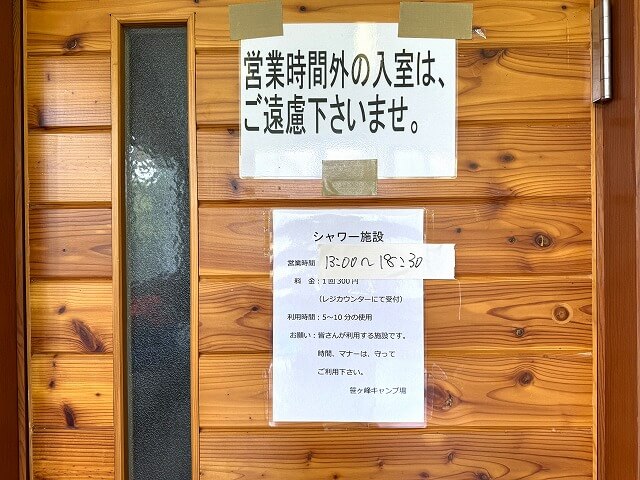 営業時間外の入室は、
ご遠慮下さいませ。
シャワー施設
営業時間 13:00〜18:30
料　金：1回300円
（レジカウンターにて受付）
利用時間：5〜10分の使用
お願い：皆さんが利用する施設です。
時間、マナーは、守って
ご利用下さい。
笹ヶ峰キャンプ場